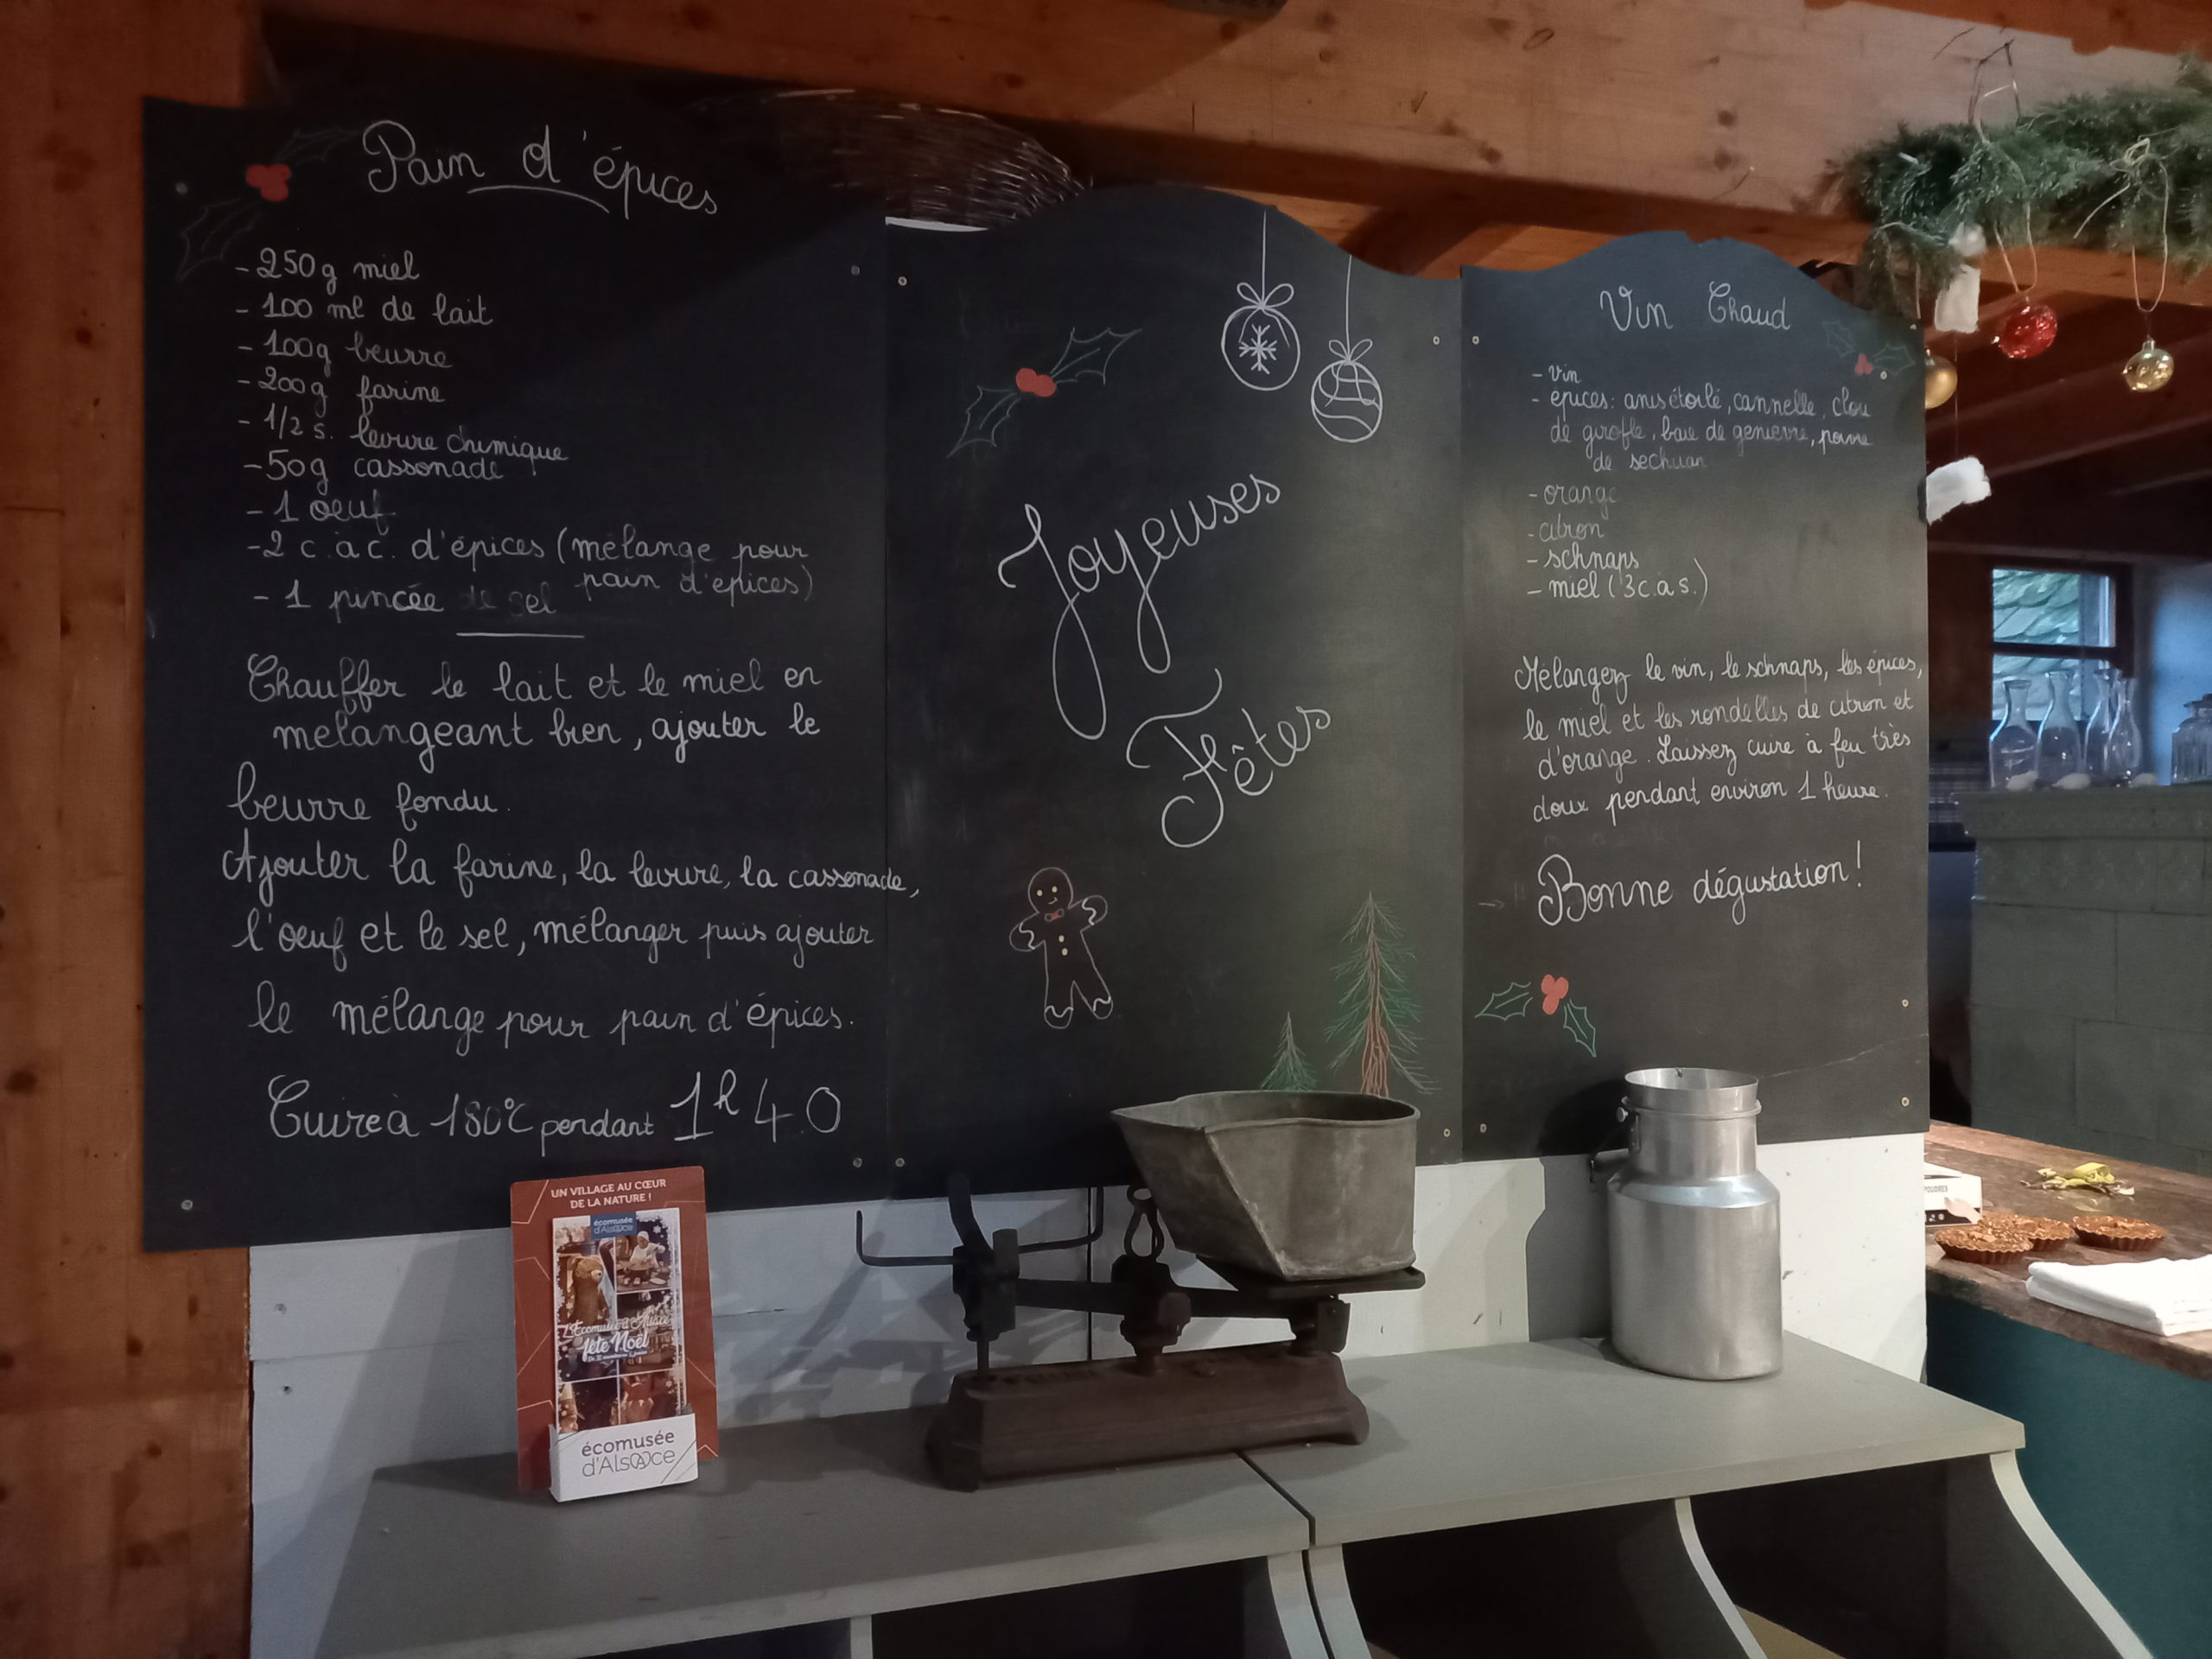 Pain d'épices
- 250g miel
- 100 ml de lait
- 100g beurre
- 200g farine
- 1/2 s. levure chimique
- 50g cassonade
- 1 oeuf
- 2 c. à c. d'épices (mélange pour
pain d'épices)
- 1 pincée de sel
Chauffer le lait et le miel en
melangeant bien, ajouter le
beurre fondu.
Ajouter la farine, la levure, la cassonade,
l'oeuf et le sel, mélanger puis ajouter
le mélange pour pain d'épices.
Cuire à 180°C pendant 1h40
Joyeuses
Fêtes
Vin Chaud
- vin
- épices: anis étoilé, cannelle, clou
de girofle, baie de genievre, poivre
de sechuan
- orange
- citron
- schnaps
- miel (3 c.à s.)
Mélangez le vin, le schnaps, les épices,
le miel et les rondelles de citron et
d'orange. Laissez cuire à feu très
doux pendant environ 1 heure.
→ Bonne dégustation!
UN VILLAGE AU CŒUR
DE LA NATURE !
écomusée
d'Alsace
L'Ecomusée d'Alsace
fête Noël
écomusée
d'Alsace